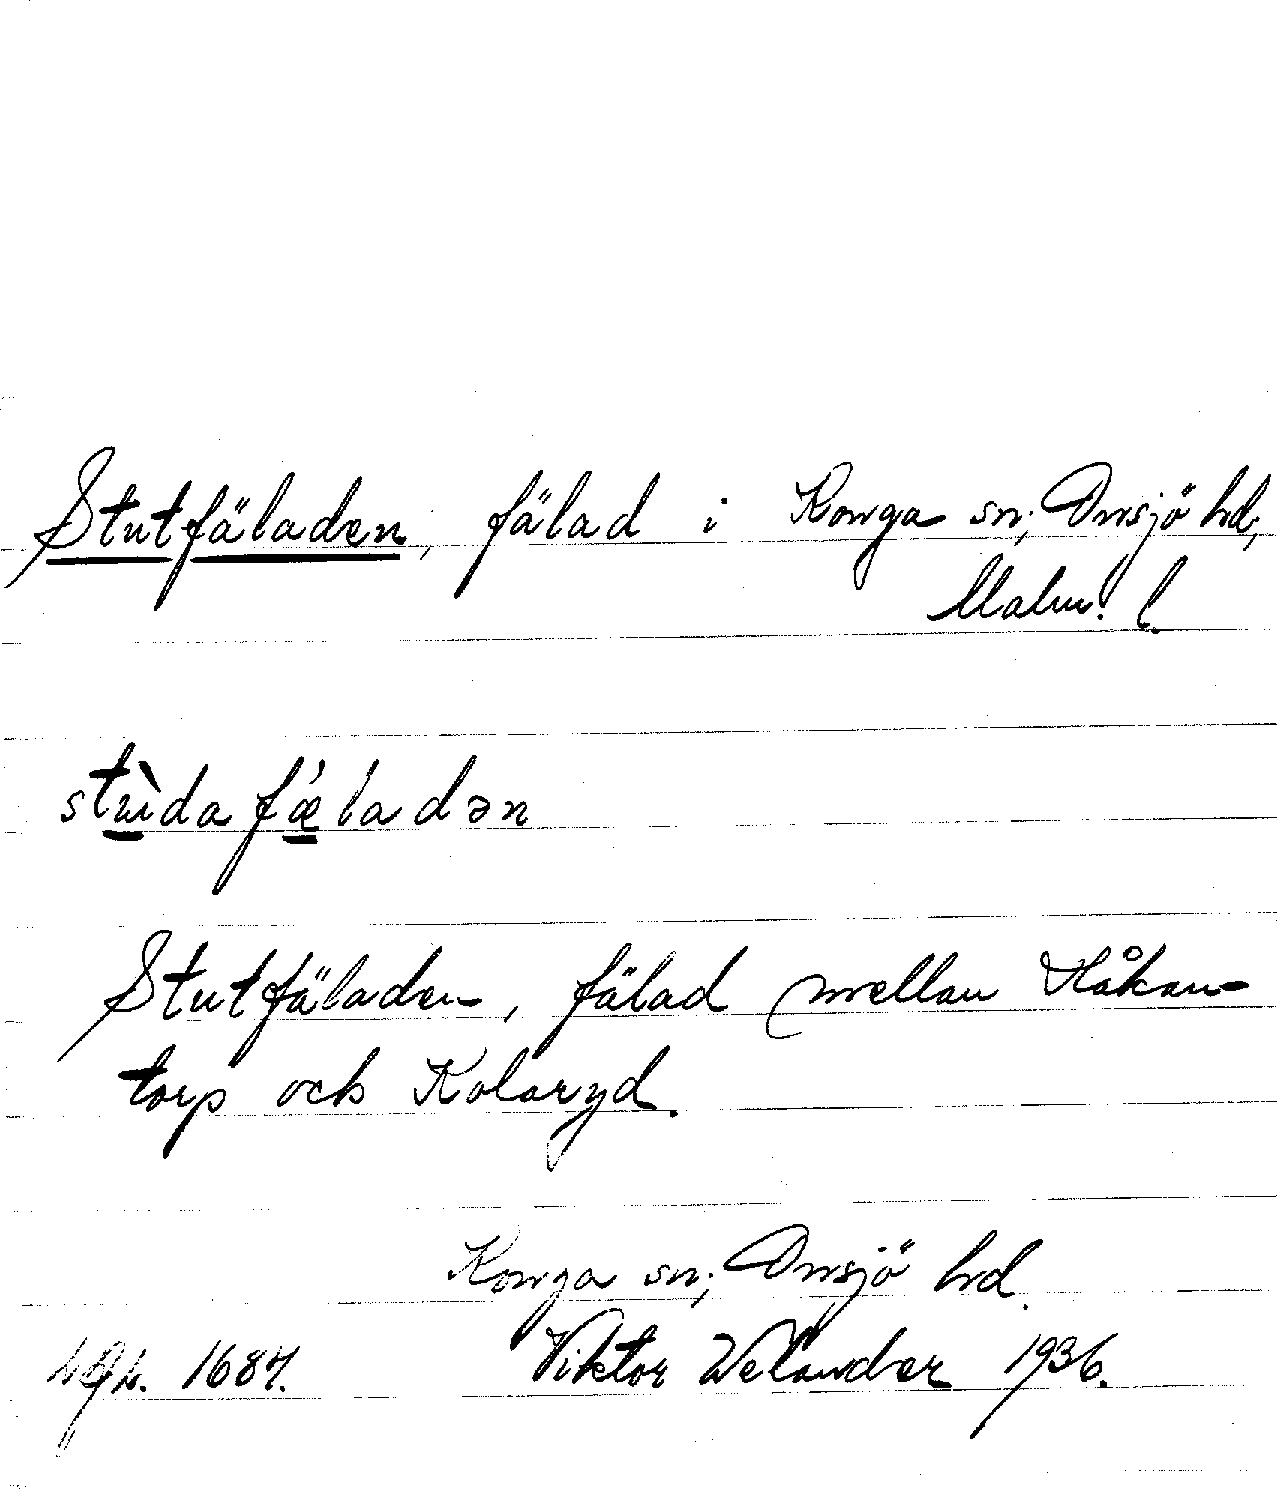 Stutfäladen, fälad i Konga sn, Onsjö hd,
Malm. l.
stùdafǽladən
Stutfäladen, fälad mellan Håkan-
torp och Kolaryd.
Konga sn, Onsjö hd.
1687. Viktor Welander 1936.